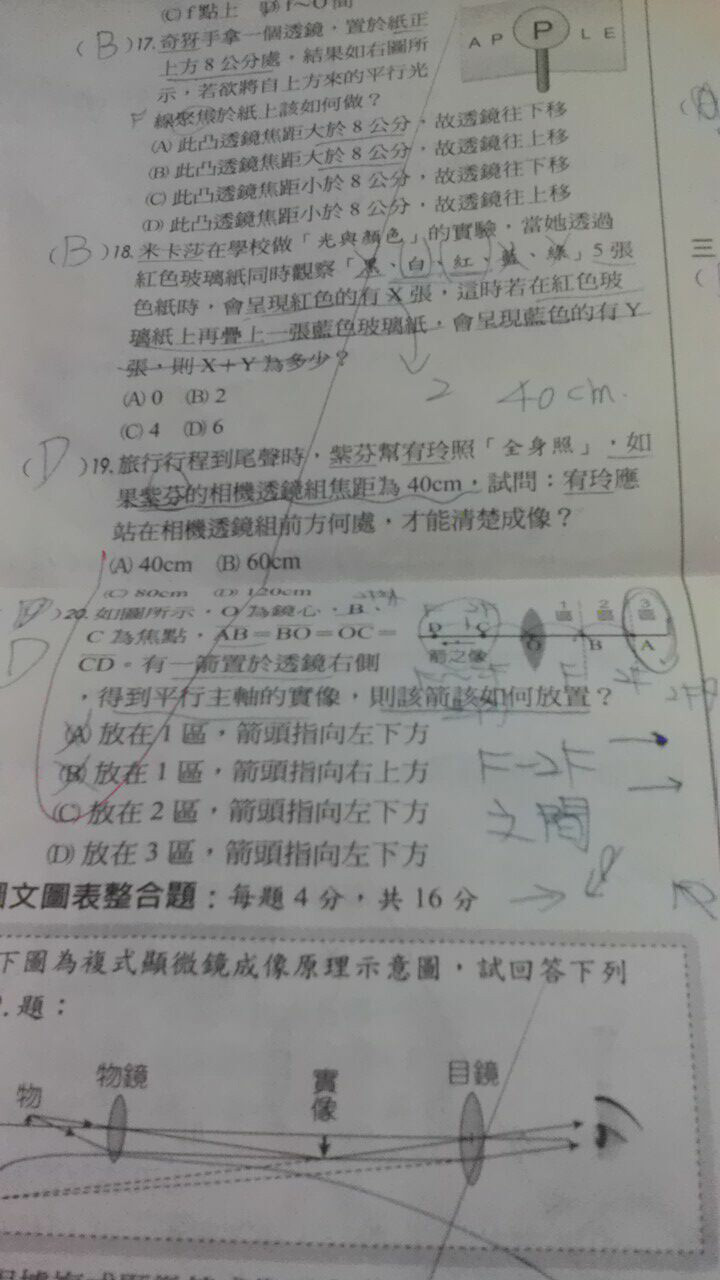 (C) f點上
(B) 17. 奇犽手拿一個透鏡，置於紙正
上方8公分處，結果如右圖所
示，若欲將自上方來的平行光
線聚焦於紙上該如何做？
A P P L E
(A) 此凸透鏡焦距大於8公分，故透鏡往下移
(B) 此凸透鏡焦距大於8公分，故透鏡往上移
(C) 此凸透鏡焦距小於8公分，故透鏡往下移
(D) 此凸透鏡焦距小於8公分，故透鏡往上移
(B) 18. 米卡莎在學校做「光與顏色」的實驗，當她透過
紅色玻璃紙同時觀察「黑、白、紅、藍、綠」5張
色紙時，會呈現紅色的有X張，這時若在紅色玻
璃紙上再疊上一張藍色玻璃紙，會呈現藍色的有Y
張，則X+Y為多少？
2
(A) 0 (B) 2
40cm.
(C) 4 (D) 6
(D) 19. 旅行行程到尾聲時，紫芬幫宥玲照「全身照」，如
果紫芬的相機透鏡組焦距為40cm，試問：宥玲應
站在相機透鏡組前方何處，才能清楚成像？
(A) 40cm (B) 60cm
(C) 80cm (D) 120cm
(D) 20. 如圖所示，O為鏡心，B、
C為焦點，AB=BO=OC=
CD。有一箭置於透鏡右側
，得到平行主軸的實像，則該箭該如何放置？
D
1區 2區 3區
D C O B A
箭之像
F 2F
(A) 放在1區，箭頭指向左下方
(B) 放在1區，箭頭指向右上方
F-2F
(C) 放在2區，箭頭指向左下方
之間
(D) 放在3區，箭頭指向左下方
圖文圖表整合題：每題4分，共16分
下圖為複式顯微鏡成像原理示意圖，試回答下列
題：
物 物鏡 實像 目鏡
三